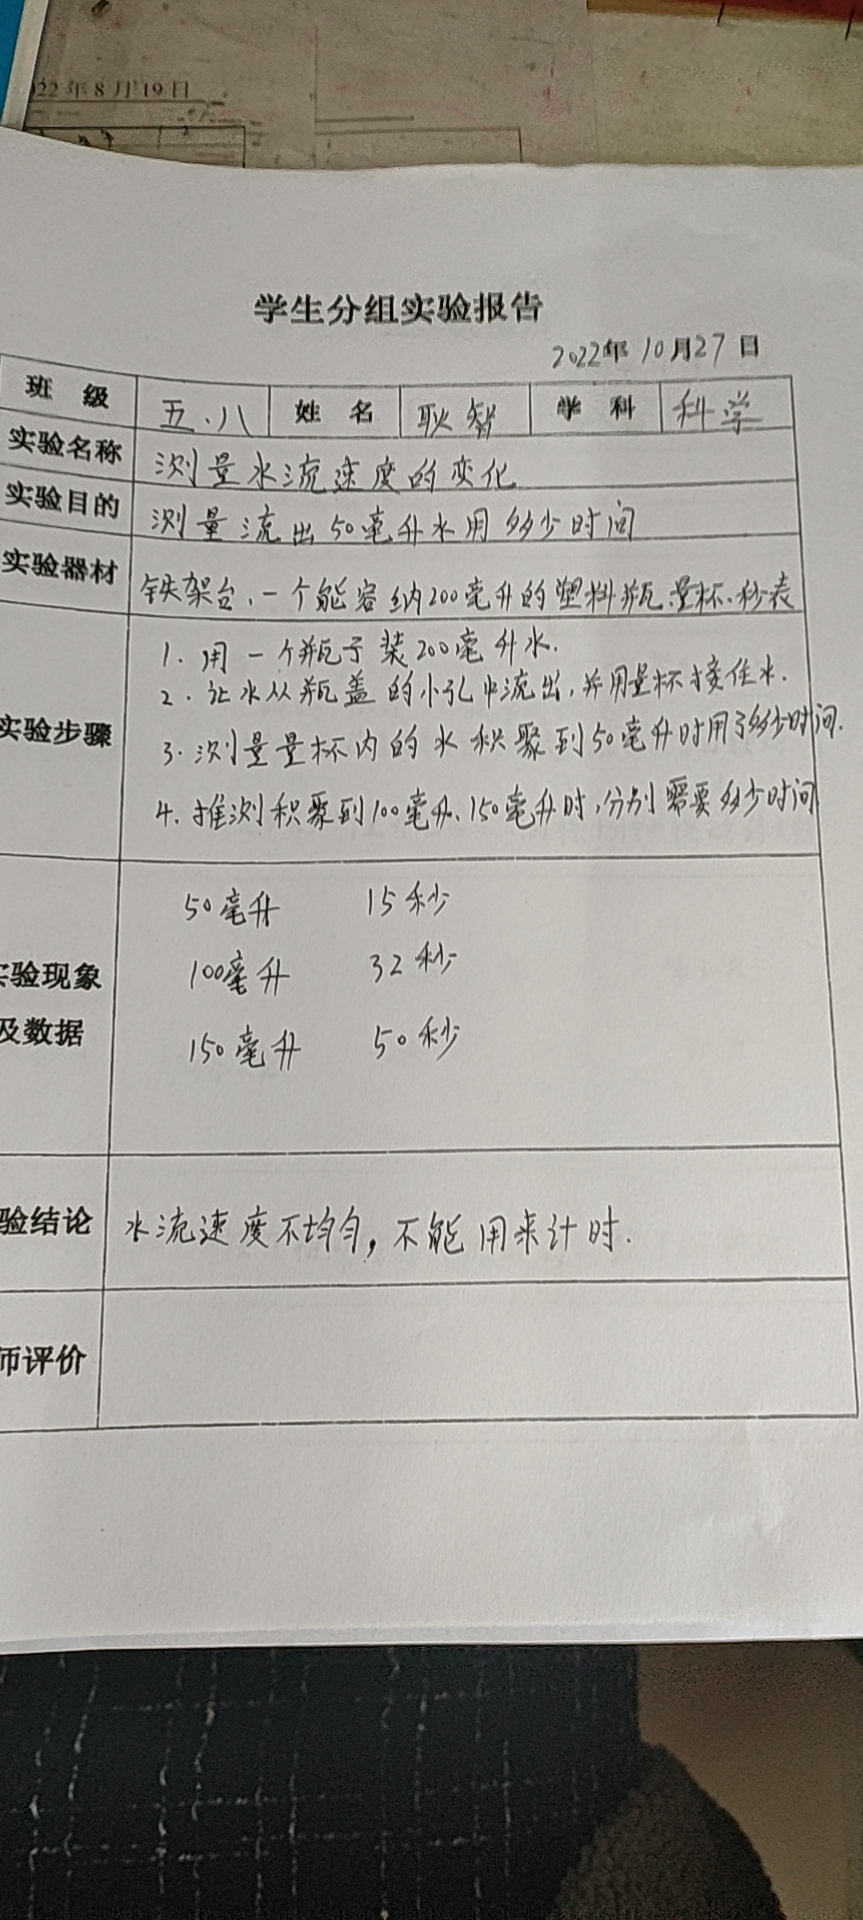 22年8月19日
学生分组实验报告
2022年10月27日
班 级 五.八 姓 名 耿智 学 科 科学
实验名称 测量水流速度的变化
实验目的 测量流出50毫升水用多少时间
实验器材 铁架台、一个能容纳200毫升的塑料瓶、量杯、秒表
实验步骤
1. 用一个瓶子装200毫升水.
2. 让水从瓶盖的小孔中流出,并用量杯接住水.
3. 测量量杯内的水积聚到50毫升时用了多少时间.
4. 推测积聚到100毫升、150毫升时,分别需要多少时间
50毫升 15秒
验现象 100毫升 32秒
及数据 150毫升 50秒
验结论 水流速度不均匀,不能用来计时.
师评价